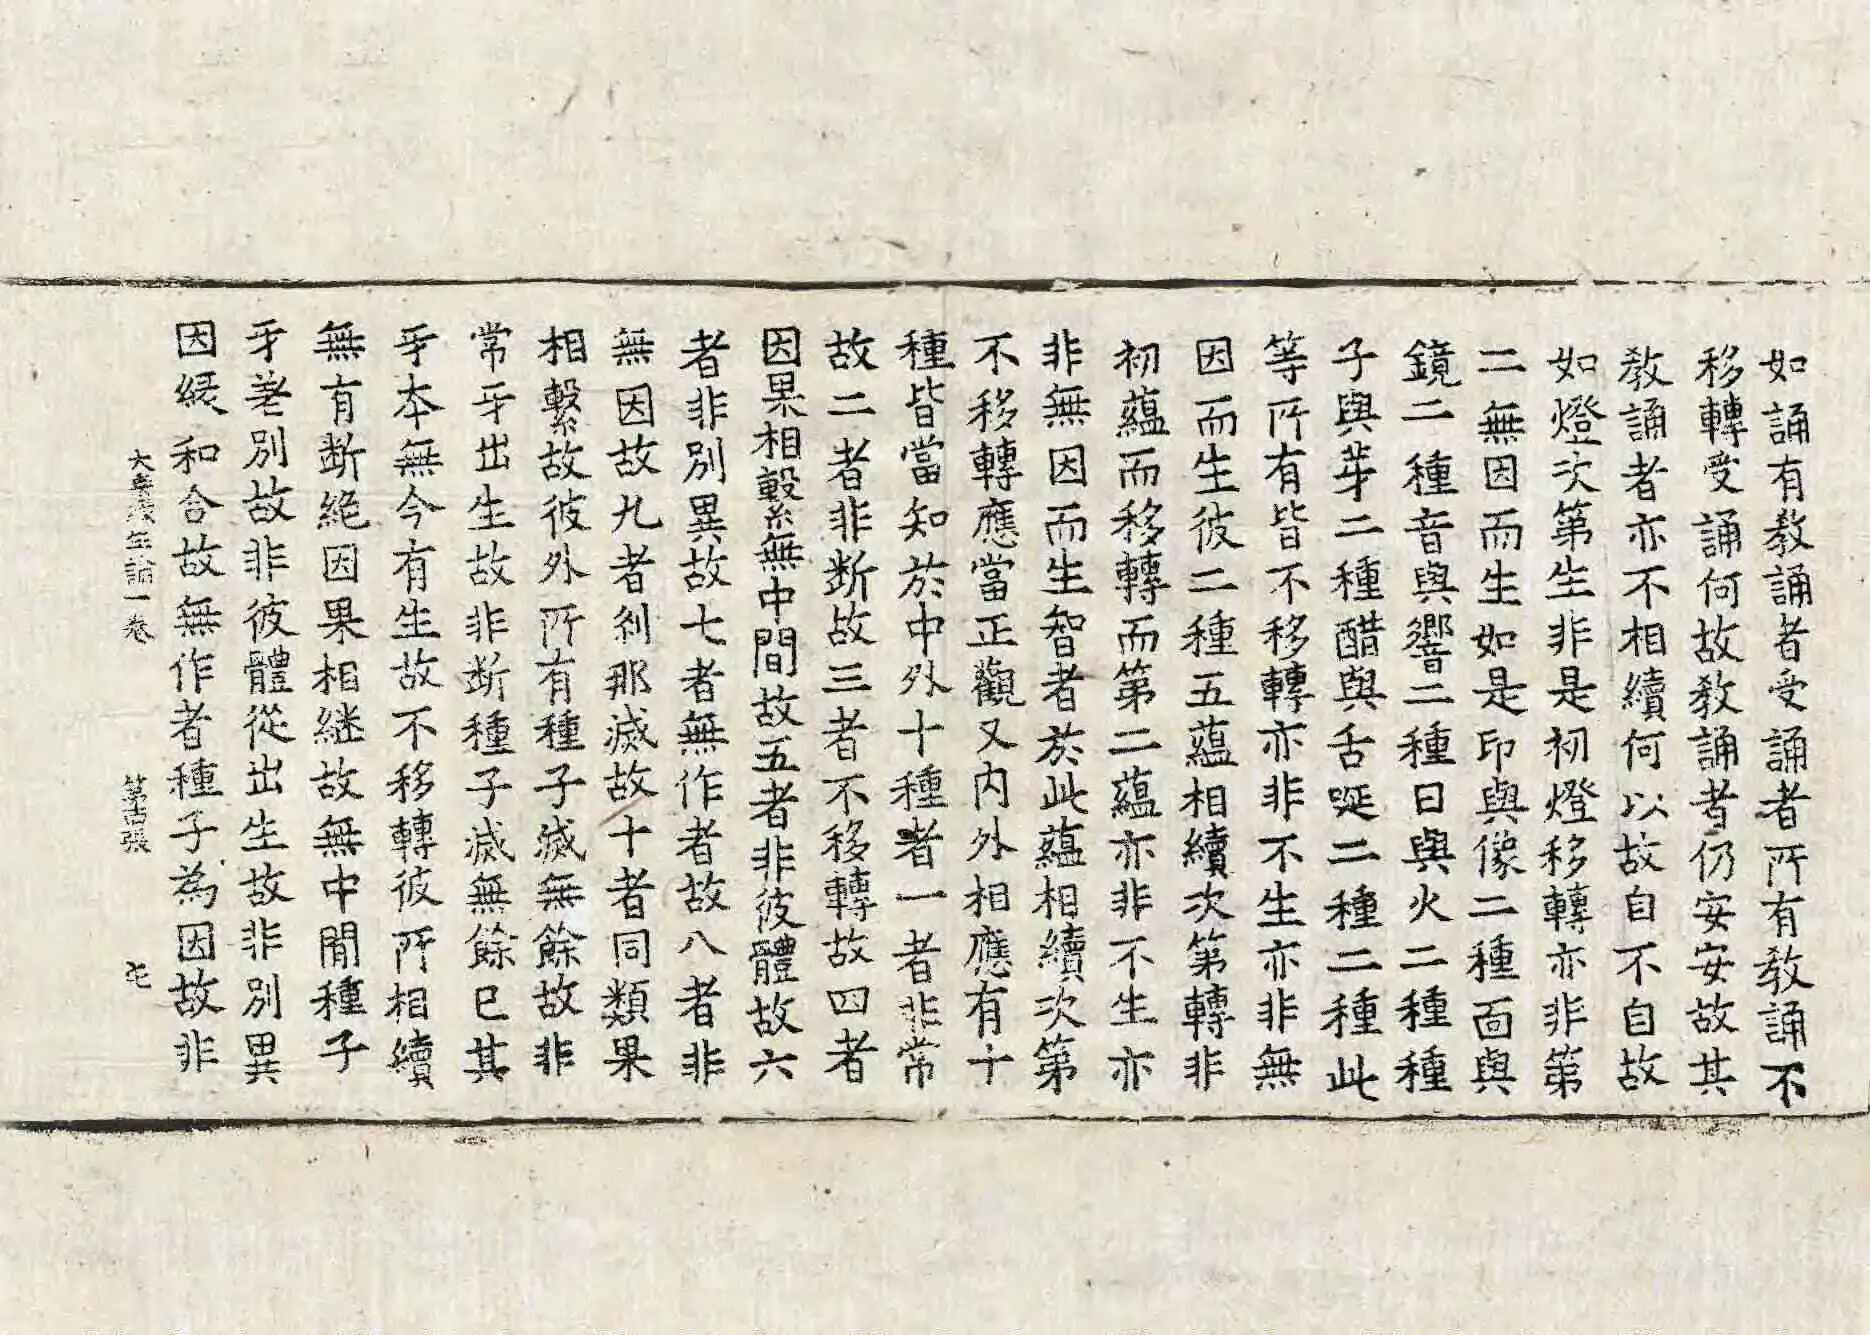 如誦有教誦者受誦者所有教誦不
移轉受誦何故教誦者仍安安故其
教誦者亦不相續何以故自不自故
如燈次第生非是初燈移轉亦非第
二無因而生如是印與像二種面與
鏡二種音與響二種日與火二種種
子與芽二種醋與舌唌二種二種此
等所有皆不移轉亦非不生亦非無
因而生彼二種五蘊相續次第轉非
初蘊而移轉而第二蘊亦非不生亦
非無因而生智者於此蘊相續次第
不移轉應當正觀又內外相應有十
種皆當知於中外十種者一者非常
故二者非断故三者不移轉故四者
因果相繫無中間故五者非彼體故六
者非別異故七者無作者故八者非
無因故九者刹那滅故十者同類果
相繫故彼外所有種子滅無餘故非
常牙出生故非断種子滅無餘已其
牙本無今有生故不移轉彼所相續
無有断絕因果相継故無中間種子
牙差別故非彼體從出生故非別異
因緩和合故無作者種子為因故非
大乘緣生論一卷 第十四張